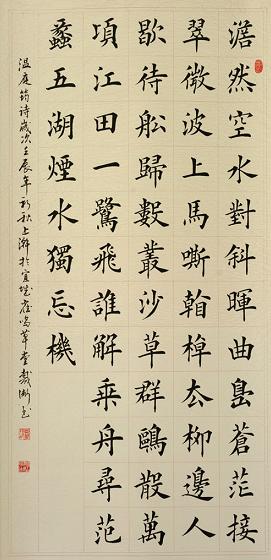 澹然空水對斜暉曲島蒼茫接
翠微波上馬嘶翰棹厺柳邊人
歇待舩歸數叢沙草群鷗散萬
頃江田一鷺飛誰解乘舟尋范
蠡五湖煙水獨忘機
温庭筠诗歲次壬辰年初秋上澣於宜城草堂